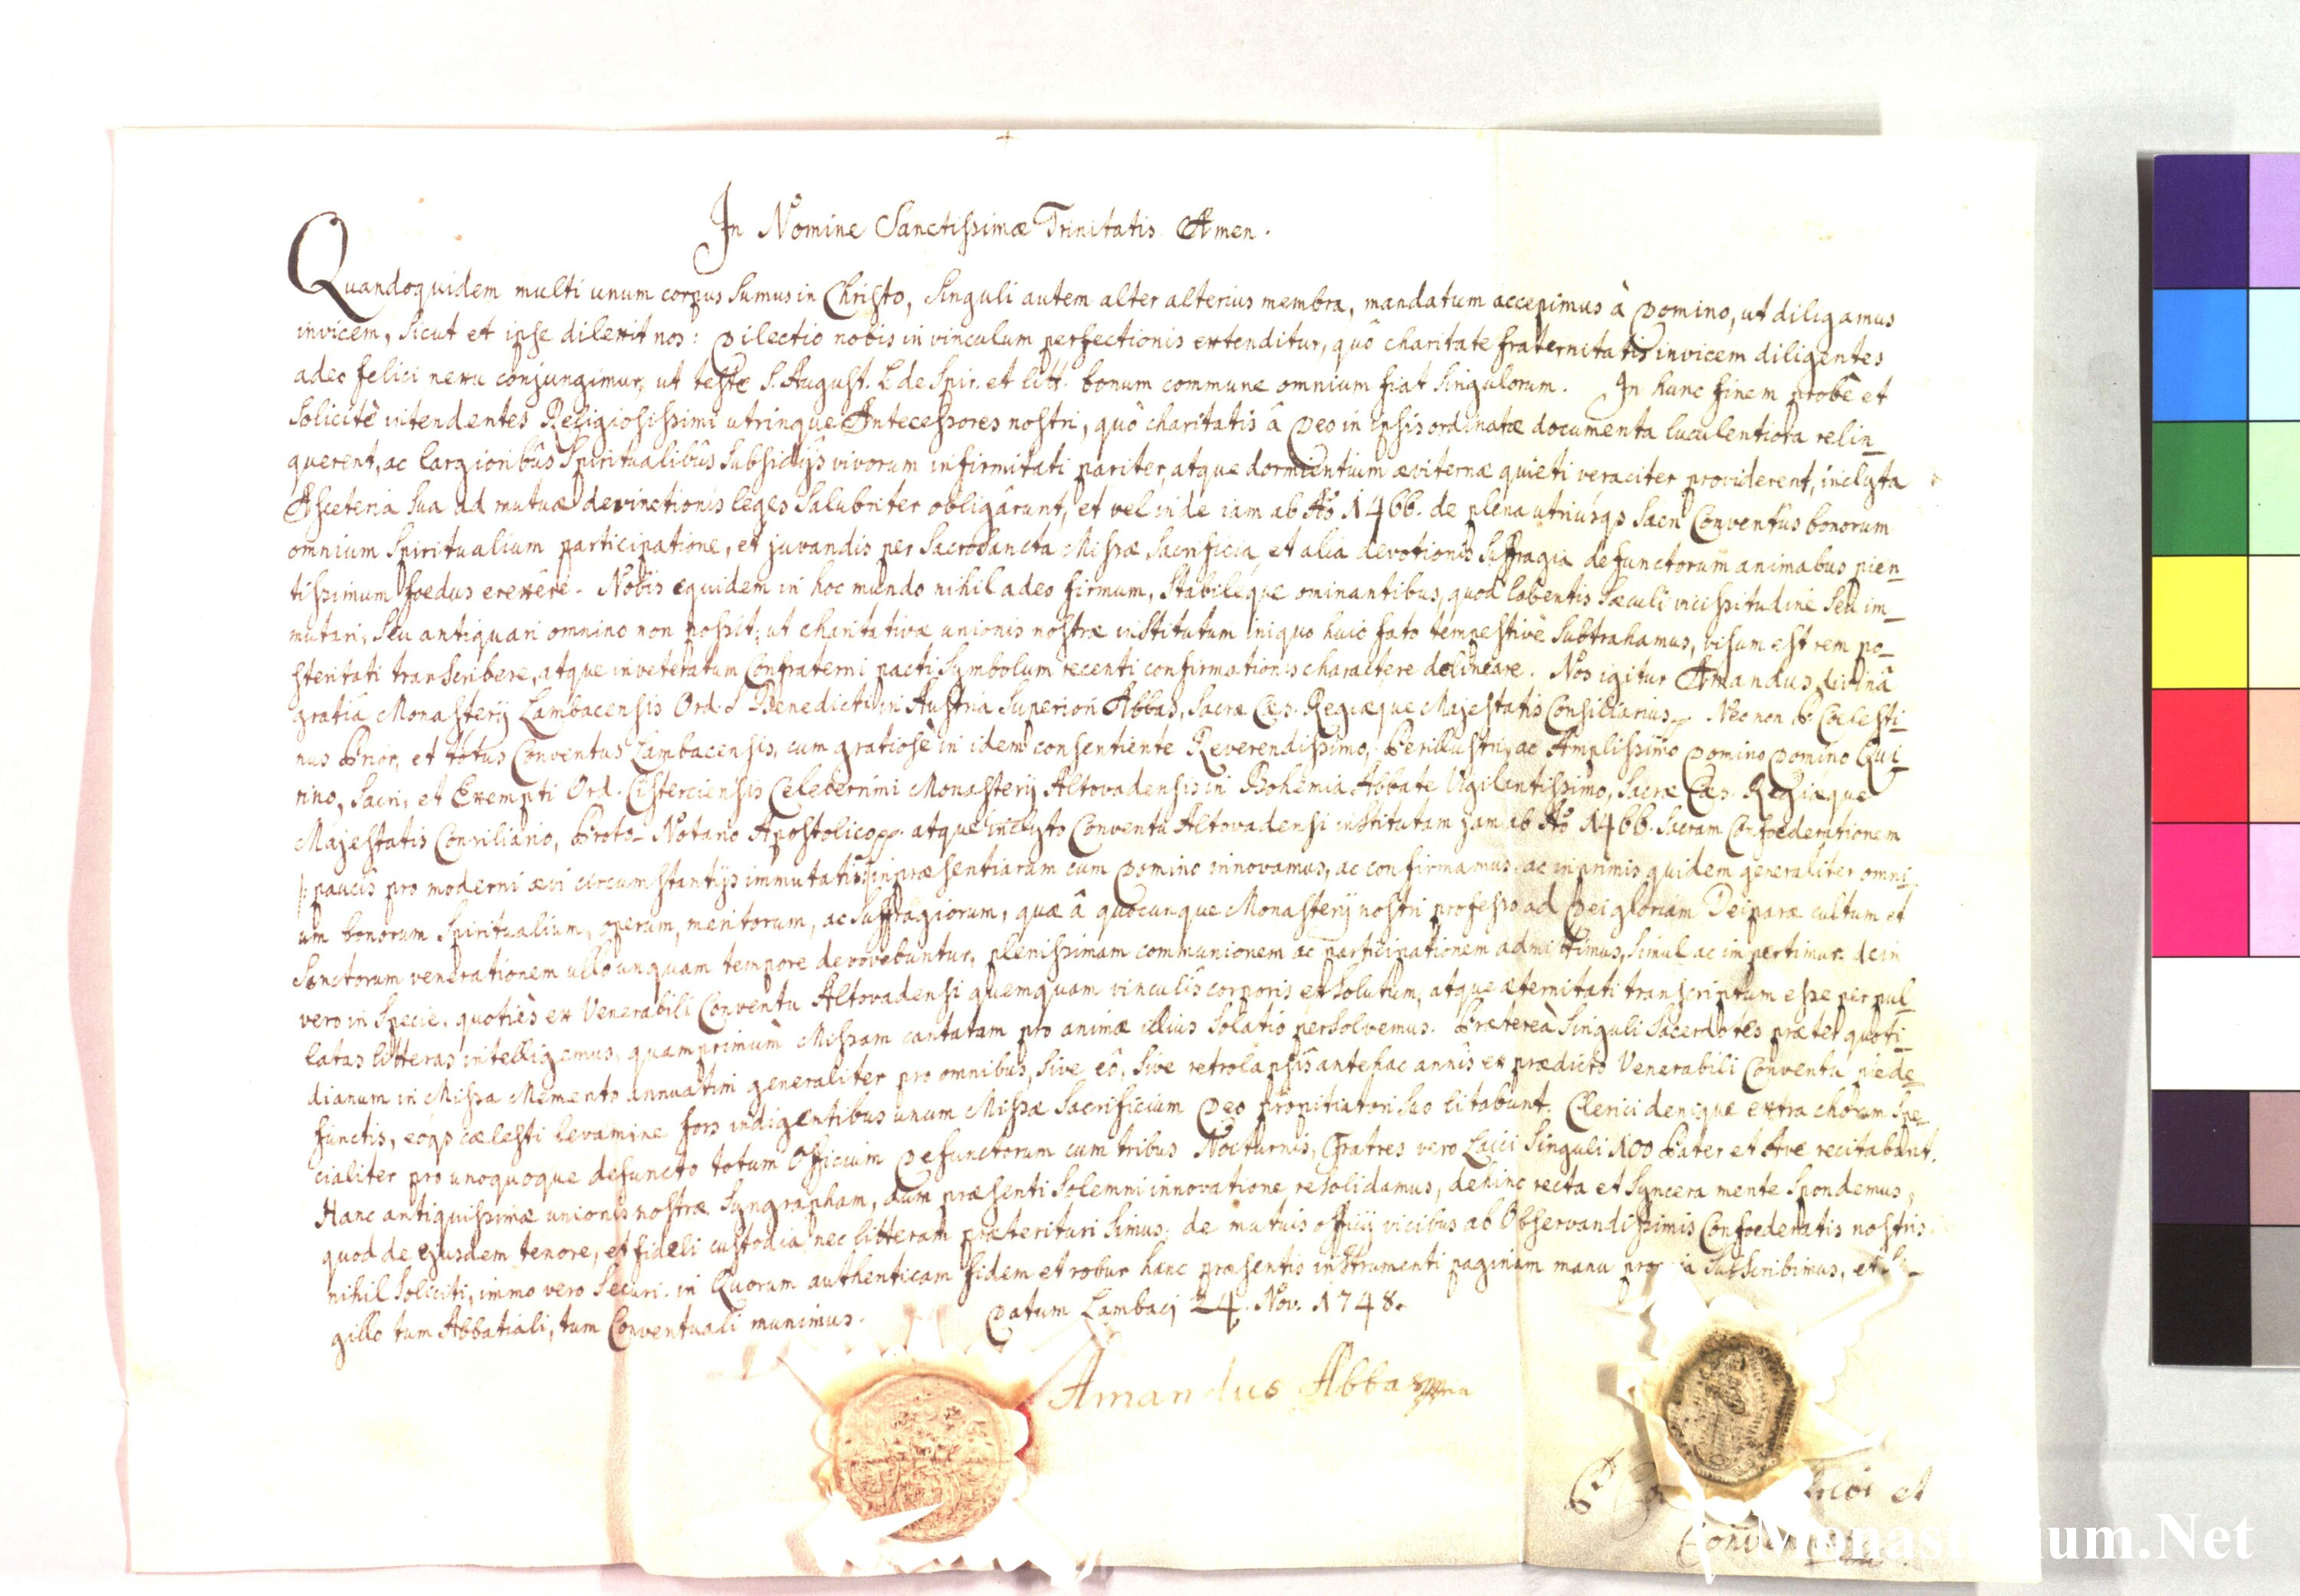 In Nomine Sanctissimæ Trinitatis Amen.
Quandoquidem multi unum corpus sumus in Christo, singuli autem alter alterius membra, mandatum accepimus à Domino, ut diligamus
invicem, sicut et ipse dilexit nos: Dilectio nobis in vinculum perfectionis extenditur, quô charitate fraternitatis invicem diligentes
adeo felici nexu conjungimur, ut teste S. August. L de Spir. et litt. bonum commune omnium fiat singulorum. In hunc finem probê et
solicitè intendentes Religiosissimi utrinque Antecessores nostri, quô charitatis â Deo in ipsis ordinatæ documenta luculentiora relin_
querent, ac largioribûs spiritualibûs subsidijs vivorum infirmitati pariter, atque dormientium æviternæ quieti veraciter providerent, inclyta
Asceteria sua ad mutuæ devinctionis leges salubriter obligârunt, et vel inde iam ab Aô 1466. de plena utriúsqs sacri Conventûs bonorum
omnium spiritualium participatione, et juvandis per Sacrosancta Missæ sacrificia, et alia devotionis suffragia defunctorum animabus pien_
tissimum foedus erexêre. Nobis equidem in hoc mundo nihil adeo firmum, stabiléque ominantibus, quod labentis sæculi vicissitudine seu im_
mutari, seu antiquari omnino non possit; ut charitativæ unionis nostræ institutum iniquo huic fato tempestivê subtrahamus, visum est rem po_
steritati transcribere, atque inveteratum Confraterni pacti symbolum recenti confirmationis charactere delineare. Nos igitur Amandus divinâ
gratiâ Monasterij Lambacensis Ord. S. Benedicti in Austria Superiori Abbas, Sacræ Cæs. Regiæque Majestatis Consiliarius, Nec non P. Cælesti_
nus Prior, et totus Conventus Lambacensis, cum gratiosè in idem consentiente Reverendissimo, Perillustri, ac Amplissimo Domino Domino Qui_
rino, Sacri, et Exempti Ord. Cisterciensis Celeberrimi Monasterij Altovadensis in Bohemia Abbate Vigilantissimo, Sacræ Cæs. Regiæque
Majestatis Consiliario, Proto-Notario Apostolico atque inclyto Conventu Altovadensi institutam jam ab Aô 1466. sacram Confoederationem
|: paucis pro moderni ævi circumstantijs immutatis :| in præsentiarum cum Domino innovamus, ac confirmamus. ac inprimis quidem generaliter omni_
um bonorum spiritualium, operum, meritorum, ac suffragiorum, quæ â quocunque Monasterij nostri professo ad Dei gloriam Deiparæ cultum et
Sanctorum venerationem ullo unquam tempore devovebuntur, plenissimam communionem ac participationem admittimus, simul ac impertimur. dein
vero in specie, quotiès ex Venerabili Conventu Altovadensi quemquam vinculis corporis exsolutum, atque æternitati transcriptum esse per pul_
latas litteras intelligemus, quamprimùm Missam cantatam pro animæ illius solatio persolvemus. Prætereà singuli sacerdotes præter quoti_
dianum in Missa Memento annuatim generaliter pro omnibus, sive eô, sive retrolapsis antehac annis ex prædicto Venerabili Conventu piede_
functis, eóqs cælesti levamine fors indigentibus unum Missæ sacrificium Deo propitiatori suo litabunt. Clerici denique extra chorum spe_
cialiter pro unoquoque defuncto totum Officium Defunctorum cum tribus Nocturnis, Fratres vero Laici singuli 100 Pater et Ave recitabunt.
Hanc antiquissimæ unionis nostræ syngrapham, dum præsenti solemni innovatione resolidamus, dehinc recta et syncera mente spondemus,
quod de ejusdem tenore, et fideli custodia nec litteram præterituri simus; de mutuis officij vicibus ab Observandissimis Confoederatis nostris
nihil soliciti, immo vero securi. in Quorum authenticam fidem et robur hanc præsentis instrumenti paginam manu subscribimus, et si_
gillo tum Abbatiali, tum Conventuali munimus. Datum Lambacj 24. Nov. 1748.
Amandus Abbas
Prior et
Monasterium.Net